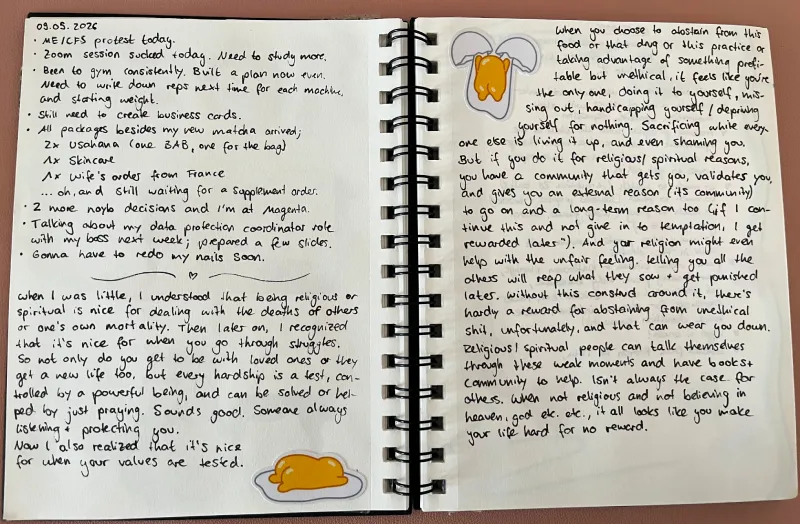 09.05.2026
• ME/CFS protest today.
• Zoom session sucked today. Need to study more.
• Been to gym consistently. Built a plan now even.
Need to write down reps next time for each machine,
and starting weight.
• Still need to create business cards.
• All packages besides my new matcha arrived;
2x Usahana (one BAB, one for the bag)
1x Skincare
1x Wife's order from France
... oh, and still waiting for a supplement order.
• 2 more noyb decisions and I'm at Magenta.
• Talking about my data protection coordinator role
with my boss next week; prepared a few slides.
• Gonna have to redo my nails soon.
When I was little, I understood that being religious or
spiritual is nice for dealing with the deaths of others
or one's own mortality. Then later on, I recognized
that it's nice for when you go through struggles.
So not only do you get to be with loved ones or they
get a new life too, but every hardship is a test, con-
trolled by a powerful being, and can be solved or hel-
ped by just praying. Sounds good. Someone always
listening + protecting you.
Now I also realized that it's nice
for when your values are tested.
When you choose to abstain from this
food or that drug or this practice or
taking advantage of something profi-
table but unethical, it feels like you're
the only one, doing it to yourself, mis-
sing out, handicapping yourself / depriving
yourself for nothing. Sacrificing while every-
one else is living it up, and even shaming you.
But if you do it for religious/spiritual reasons,
you have a community that gets you, validates you,
and gives you an external reason (its community)
to go on and a long-term reason too (if I con-
tinue this and not give in to temptation, I get
rewarded later"). And your religion might even
help with the unfair feeling, telling you all the
others will reap what they sow + get punished
later. Without this construct around it, there's
hardly a reward for abstaining from unethical
shit, unfortunately, and that can wear you down.
Religious/spiritual people can talk themselves
through these weak moments and have books+
community to help. Isn't always the case for
others. When not religious and not believing in
heaven, god etc. etc., it all looks like you make
your life hard for no reward.